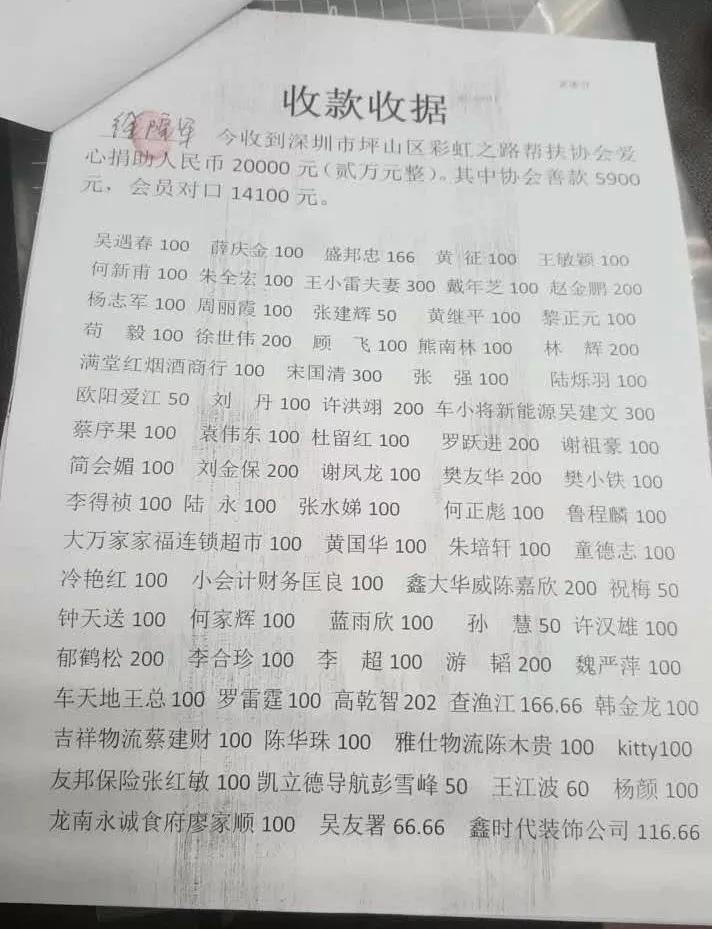 收款收据
徐 今收到深圳市坪山区彩虹之路帮扶协会爱
心捐助人民币 20000 元（贰万元整）。其中协会善款 5900
元，会员对口 14100 元。
吴遇春 100 薛庆金 100 盛邦忠 166 黄 征 100 王敏颖 100
何新甫 100 朱全宏 100 王小雷夫妻 300 戴年芝 100 赵金鹏 200
杨志军 100 周丽霞 100 张建辉 50 黄继平 100 黎正元 100
苟 毅 100 徐世伟 200 顾 飞 100 熊南林 100 林 辉 200
满堂红烟酒商行 100 宋国清 300 张 强 100 陆烁羽 100
欧阳爱江 50 刘 丹 100 许洪翊 200 车小将新能源吴建文 300
蔡序果 100 袁伟东 100 杜留红 100 罗跃进 200 谢祖豪 100
简会媚 100 刘金保 200 谢凤龙 100 樊友华 200 樊小铁 100
李得祯 100 陆 永 100 张水娣 100 何正彪 100 鲁程麟 100
大万家家福连锁超市 100 黄国华 100 朱培轩 100 童德志 100
冷艳红 100 小会计财务匡良 100 鑫大华威陈嘉欣 200 祝梅 50
钟天送 100 何家辉 100 蓝雨欣 100 孙 慧 50 许汉雄 100
郁鹤松 200 李合珍 100 李 超 100 游 韬 200 魏严萍 100
车天地王总 100 罗雷霆 100 高乾智 202 查渔江 166.66 韩金龙 100
吉祥物流蔡建财 100 陈华珠 100 雅仕物流陈木贵 100 kitty100
友邦保险张红敏 100 凯立德导航彭雪峰 50 王江波 60 杨颜 100
龙南永诚食府廖家顺 100 吴友署 66.66 鑫时代装饰公司 116.66